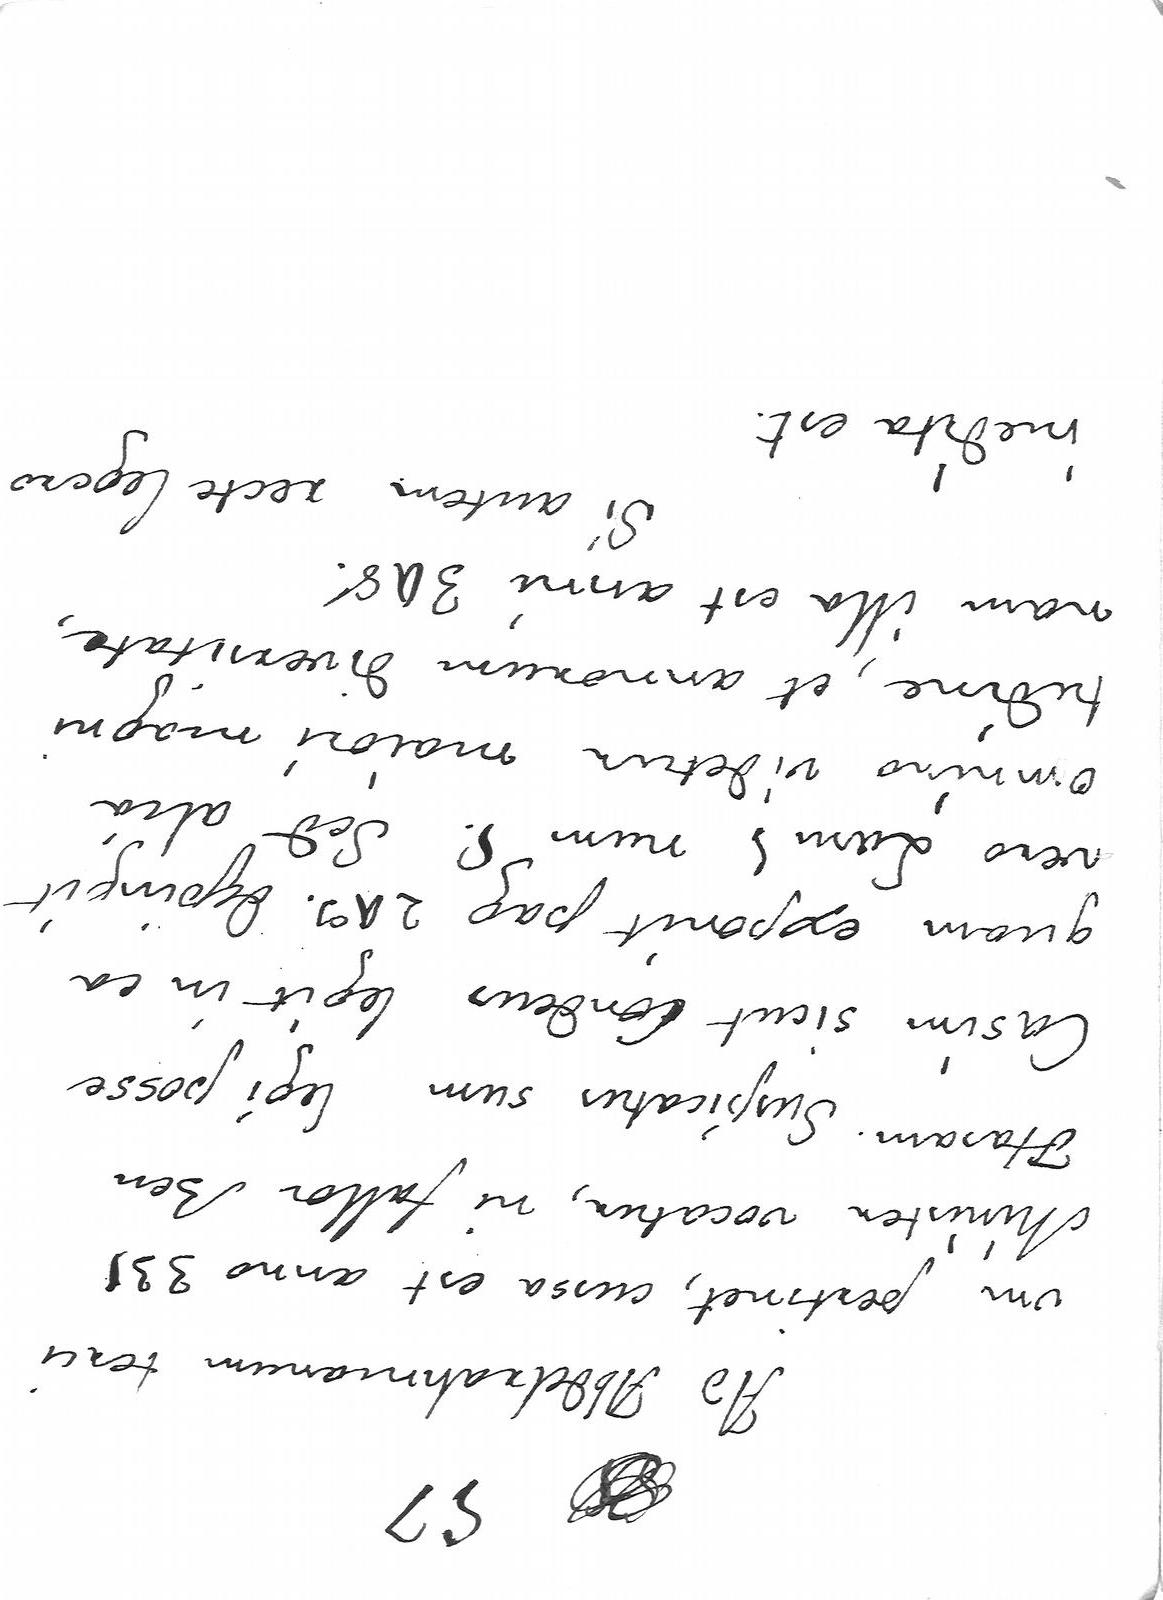 57
Ad Abdelrahmanum terci
um pertinet, cussa est anno 331
Minister vocatur, ni fallor Ben
Haram. Suspicatus sum legi posse
Casim sicut Condeus legit in ea
quam exponit pag 249. Depingit
vero Lam 5 num 5. Sed alia
omnino videtur maiori magni
tudine, et annorum diversitate,
nam illa est anni 348.
Si autem recte legero
inedita est.